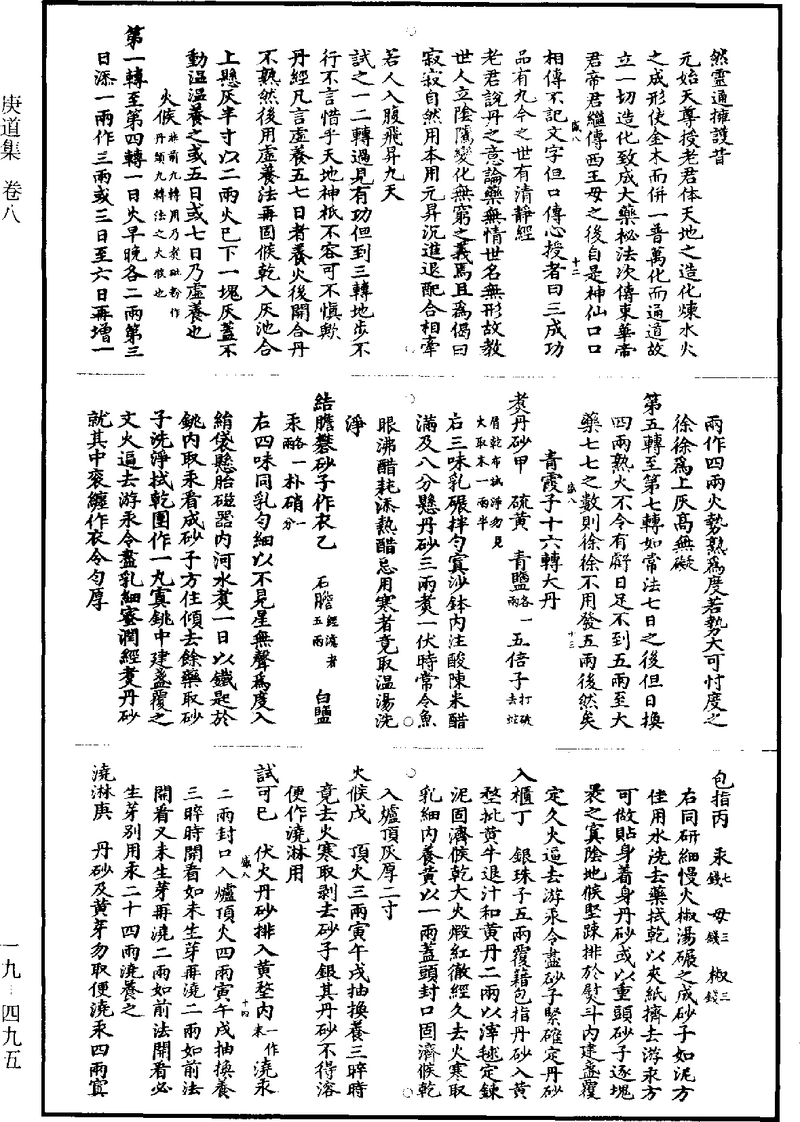 庚道集 卷八
一九—四九五
然靈通擁護昔
元始天尊授老君体天地之造化煉水火
之成形使金木而併一普萬化而通道故
立一切造化致成大藥秘法次傳東華帝
君帝君繼傳西王母之後自是神仙口口
盛八 十二
相傳不記文字但口傳心授者曰三成功
品有九今之世有清靜經
老君說丹之意論藥無情世名無形故教
世人立陰隲變化無窮之義焉且為偈曰
寂寂自然用本用元昇沉進退配合相牽
若人入腹飛昇九天
試之一二轉過見有功但到三轉地步不
行不言惜乎天地神祇不容可不慎歟
丹經凡言虛養五七日者養火後開合丹
不熟然後用虛養法再固候乾入灰池合
上懸灰半寸以二兩火已下一塊灰蓋不
動溫溫養之或五日或七日乃虛養也
火候
丹頭九轉法之大候也
第一轉至第四轉一日火早晚各二兩第三
日添一兩作三兩或三日至六日再增一
兩作四兩火勢熟為度若勢大可忖度之
徐徐為上灰高無礙
第五轉至第七轉如常法七日之後但日換
四兩熟火不令有辭日足不到五兩至大
藥七七之數則徐徐不用發五兩後然矣
盛八 十三
青霞子十六轉大丹
煑丹砂甲 硫黃 青鹽各一兩 五倍子打破去蛀
屑乾布拭淨勿見火取末一兩半
右三味乳碾拌勻寘沙鉢內注酸陳米醋
滿及八分懸丹砂三兩煑一伏時常令魚
眼沸醋耗添熱醋忌用寒者竟取温湯洗
淨
結膽礬砂子作衣乙 石膽經濾者五兩 白鹽
汞各一兩 朴硝一分
右四味同乳勻細以不見星無聲為度入
絹袋懸胎磁器內河水煑一日以鐵匙於
銚內取汞看成砂子方住傾去餘藥取砂
子洗淨拭乾團作一丸寘銚中建盞覆之
文火逼去游汞令盡乳細蜜潤經煑丹砂
就其中袞纏作衣令勻厚
包指丙 汞七錢 母三錢 椒三錢
右同研細慢火椒湯碾之成砂子如泥方
佳用水洗去藥拭乾以夾紙擠去游汞方
可做貼身着身丹砂或以重頭砂子逐塊
裹之寘陰地候堅踈排於熨斗內建盞覆
定久火逼去游汞令盡砂子緊確定丹砂
入櫃丁 銀珠子五兩覆藉包指丹砂入黃
㙛批黃牛退汁和黃丹二兩以滓越定鍊
泥固濟候乾大火煅紅徹經久去火寒取
乳細內養黃以一兩蓋頭封口固濟候乾
入爐頂灰厚二寸
火候戊 頂火三兩寅午戌抽換養三晬時
竟去火寒取剥去砂子銀其丹砂不得溶
便作澆淋用
盛八 十四
試可己 伏火丹砂排入黃㙛內一作末澆汞
二兩封口入爐頂火四兩寅午戌抽換養
三晬時開看如未生芽再澆二兩如前法
開看又未生芽再澆二兩如前法開看必
生芽別用汞二十四兩澆養之
澆淋庚 丹砂及黃芽勿取便澆汞四兩寘